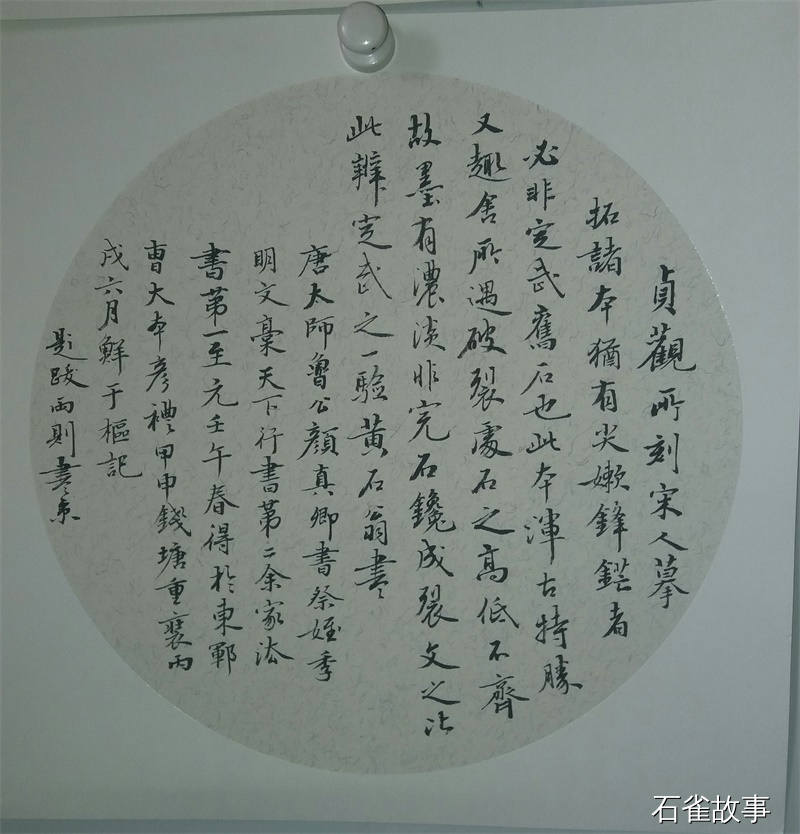 貞觀所刻宋人摹
拓諸本猶有尖嫩鋒鋩者
必非定武舊石也此本渾古特勝
又趣舍所遇破裂處石之高低不齊
故墨有濃淡非完石鑱成裂文之比
此辨定武之一驗黃石翁書
唐太師魯公顏真卿書祭姪季
明文稾天下行書第二余家法
書第一至元壬午春得於東鄆
曹大本彥禮甲申錢塘重裝丙
戌六月鮮于樞記
題跋兩則書奉
石雀故事